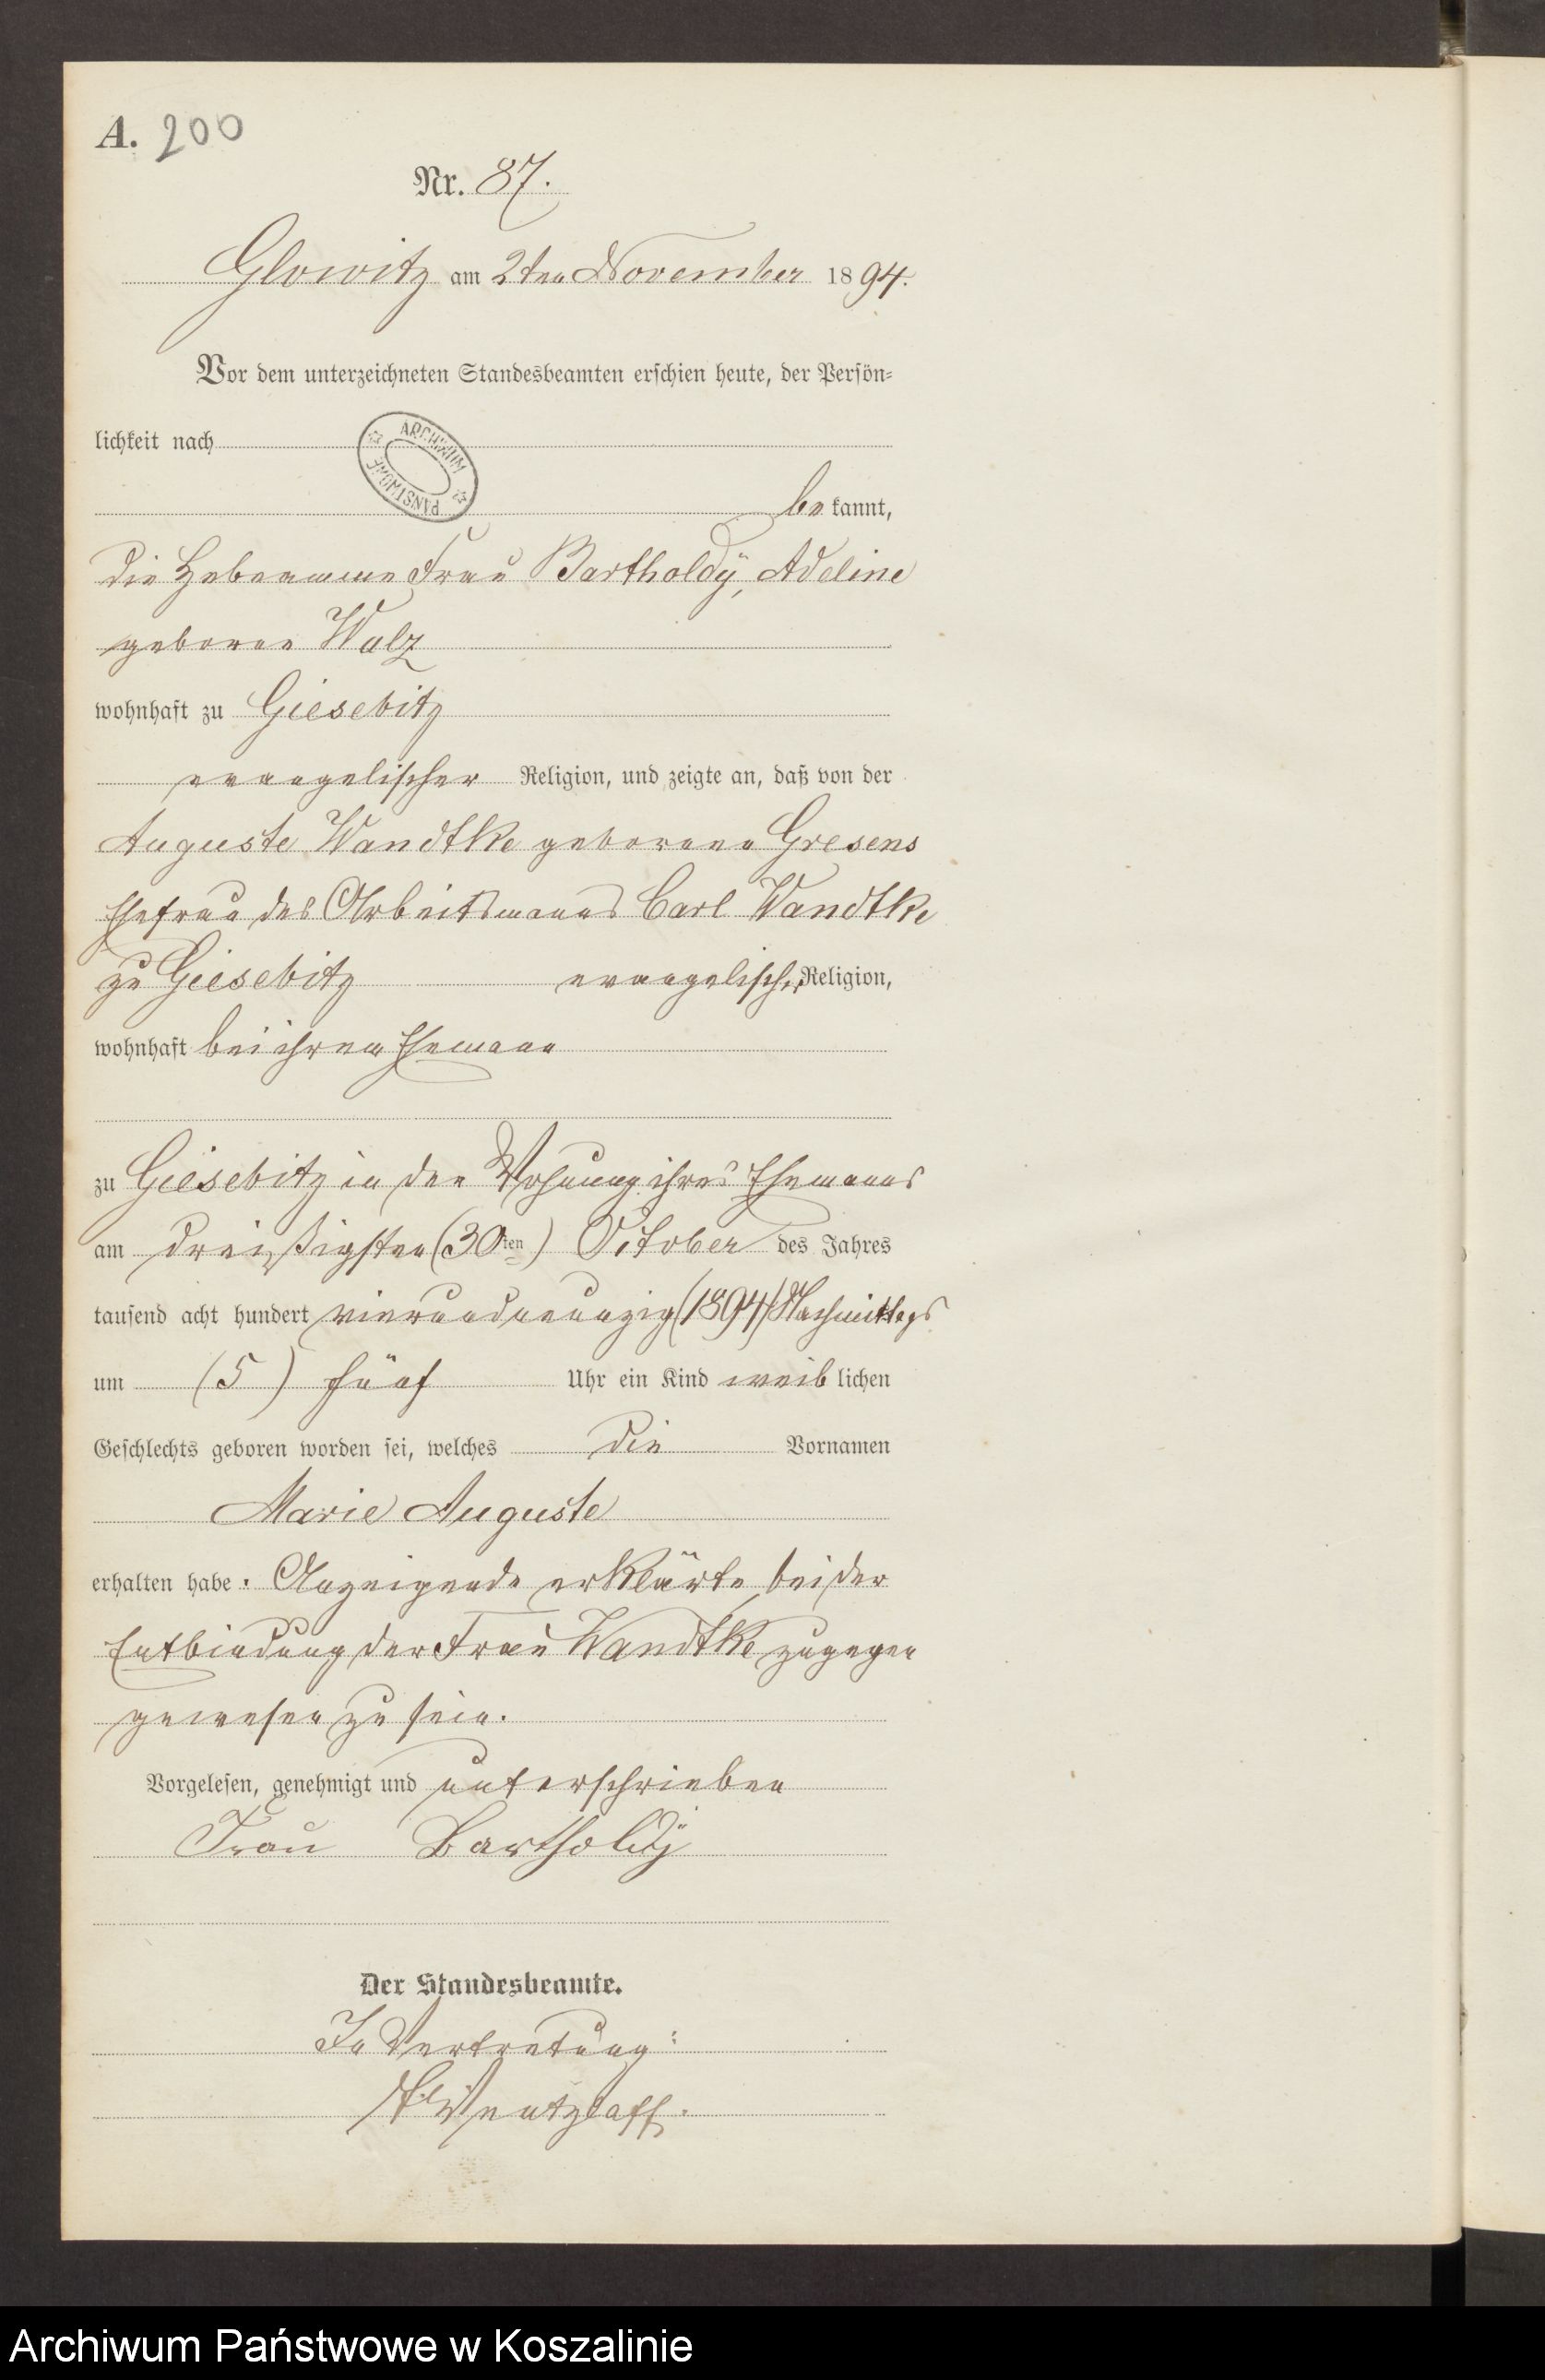 A. 200
Nr. 87.
Glowitz am 2ten November 1894.
Vor dem unterzeichneten Standesbeamten erschien heute, der Persön-
lichkeit nach
ARCHIWUM
PAŃSTWOWE
be kannt,
die Hebeamme Frau Bartholdÿ, Adeline
geborene Walz
wohnhaft zu Giesebitz
evangelischer Religion, und zeigte an, daß von der
Auguste Wandtke geborene Gresens
Ehefrau des Arbeitsmanns Carl Wandtke
zu Giesebitz evangelischer Religion,
wohnhaft bei ihrem Ehemann
zu Giesebitz in der Wohnung ihres Ehemanns
am dreißigsten (30ten) October des Jahres
tausend acht hundert vierundneunzig (1894) Nachmittags
um (5) fünf Uhr ein Kind weib lichen
Geschlechts geboren worden sei, welches die Vornamen
Marie Auguste
erhalten habe. Anzeigende erklärte, bei der
Entbindung der Frau Wandtke zugegen
gewesen zu sein.
Vorgelesen, genehmigt und unterschrieben
Frau Bartholdÿ
Der Standesbeamte.
In Vertretung:
Wentzlaff.
Archiwum Państwowe w Koszalinie